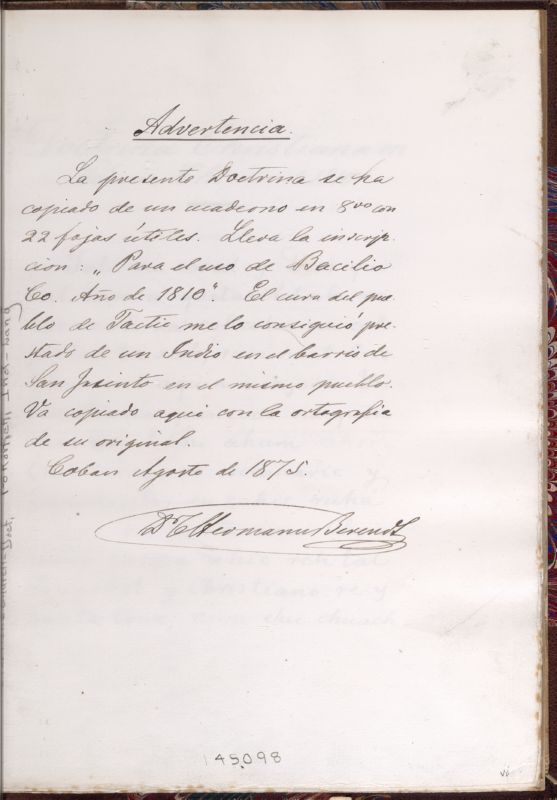 Advertencia.
La presente Doctrina se ha
copiado de un cuaderno en 8vo con
22 fojas útiles. Lleva la inscrip-
cion: „Para el uso de Bacilio
Co. Año de 1810". El cura del pue-
blo de Tactic me lo consiguió pre-
stado de un Indio en el barrio de
San Jacinto en el mismo pueblo.
Va copiado aqui con la ortografia
de su original.
Coban Agosto de 1875.
Dr C Hermann Berendt
145098
vi